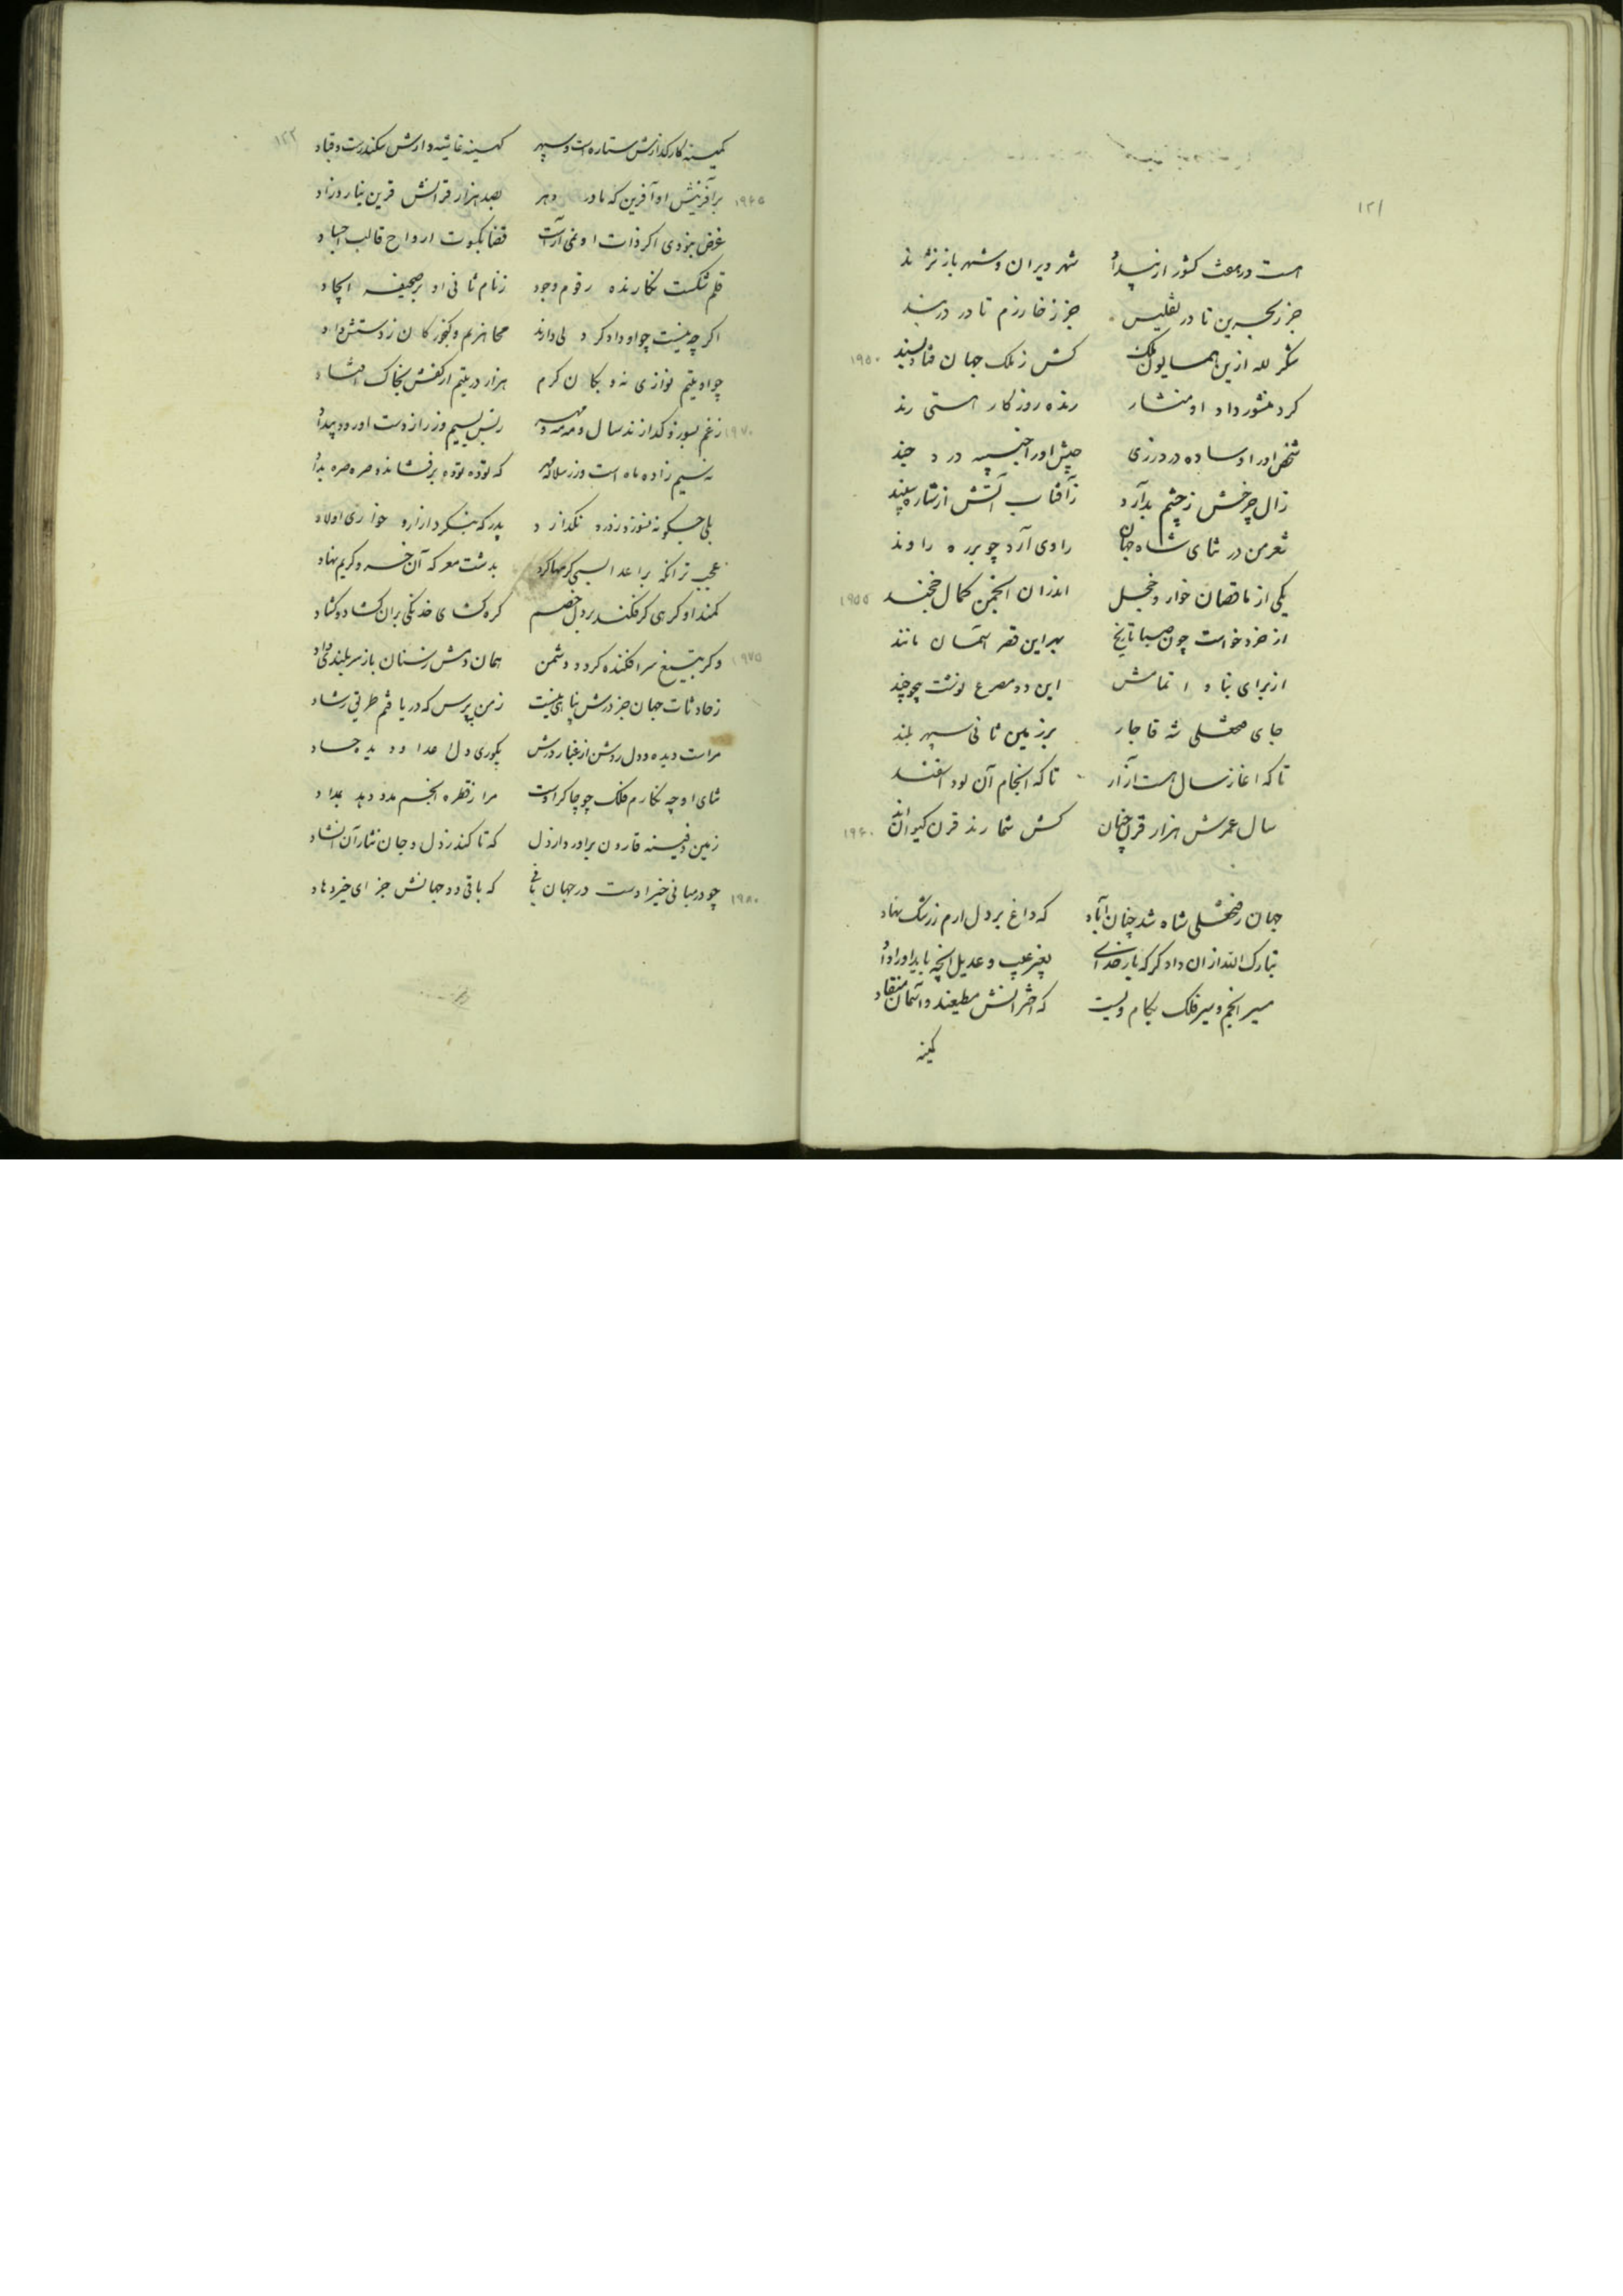 ۱۲۱
هست در هفت کشور از بیداد شهر ویران و شهر باز نژند
جز ز بحرین تا در تفلیس جز ز خوارزم تا در دربند
شکر لله ازین همایون ملک کش ز ملک جهان فتاد پسند ۱۹۵۰
کرد منشور داد او منشار رنده روزکار هستی رند
شخص او را وساده در درزی جیش او را خبیه در جند
زال چرخش ز چشم بد آرد ز آفتاب آتش از ستاره سپند
شعر من در ثنای شاه جهان راوی آرد چو بر ره راوند
یکی از ناقصان خوار و خجل اندران انجمن کمال خجند ۱۹۵۵
از خرد خواست چون صبا تاریخ بهر این قصر آسمان مانند
از برای بنا و اتمامش این دو مصرع نوشت بیچون و چند
جای فتحعلی شه قاجار بر زمین ثانی سپهر بلند
تا که اغاز سال هست آزار تا که انجام آن بود اسفند
سال عمرش هزار قرن چنان کش شمارند قرن کیوان اند ۱۹۶۰
جهان ز فتحعلی شاه شد چنان آباد که داغ بر دل ارم ز رشک نهاد
تبارک الله ازان دادکر که بار خدای بغیر عیب و عدیل آنچه باید او را داد
مسیر انجم و سیر فلک بکام ویست که اخترانش مطیعند و آسمان منقاد
کمینه
۱۲۲
کمینه کارکذارش ستاره است و سپهر کهینه غاشیه دارش سکندرست و قباد
برآفرینش او آفرین که مادر دهر بصد هزار قرانش قرین نیارد زاد ۱۹۶۵
غرض نبودی اکر ذات او نمی آراست قضا بکسوت ارواح قالب اجساد
قلم شکست نکارنده رقوم وجود ز نام ثانی او بر صحیفه ایجاد
اکرچه نیست چو او دادکر ولی دارند محاذیم و کنجور کان ز دستش داد
چو او یتیم نوازی نه و بکان کرم هزار در یتیم از کفش بخاک افتاد
ز غم بسوزد و کدازند سال و مه مه و مهر ز بس بسیم و زر از دست او رود بیداد ۱۹۷۰
نه سیم زاده ماه است و زر سلاله مهر که توده توده برفشاند و صره صره بداد
بلی چکونه نسوزد و زود نکدازد پدر که بنکرد ازار و خواری اولاد
عجب تر انکه بر اعدا بسی کرمها کرد بدشت معرکه آن خسرو کریم نهاد
کمند او کرهی کر فکند بر دل خصم کره کشای خدنکی بران کشاد و کشاد
و کر بتیغ سر افکنده کرد و دشمن همان دمش ز سنان باز سربلندی داد ۱۹۷۵
ز حادثات جهان جز درش پناهی نیست ز من بپرس که دریافتم طریق رشاد
مراست دیده و دل روشن از غبار درش بکوری دل اعدا و دیده حساد
ثنای او چه نکارم فلک چو چاکر اوست مرا ز قطره انجم مدد دهد بمداد
زمین دفینه قارون براورد از دل که تا کند ز دل و جان نثار آن انشاد
چو در مبانی خیر اوست در جهان باقی که باقی دو جهانش جزای خیر دهاد ۱۹۸۰